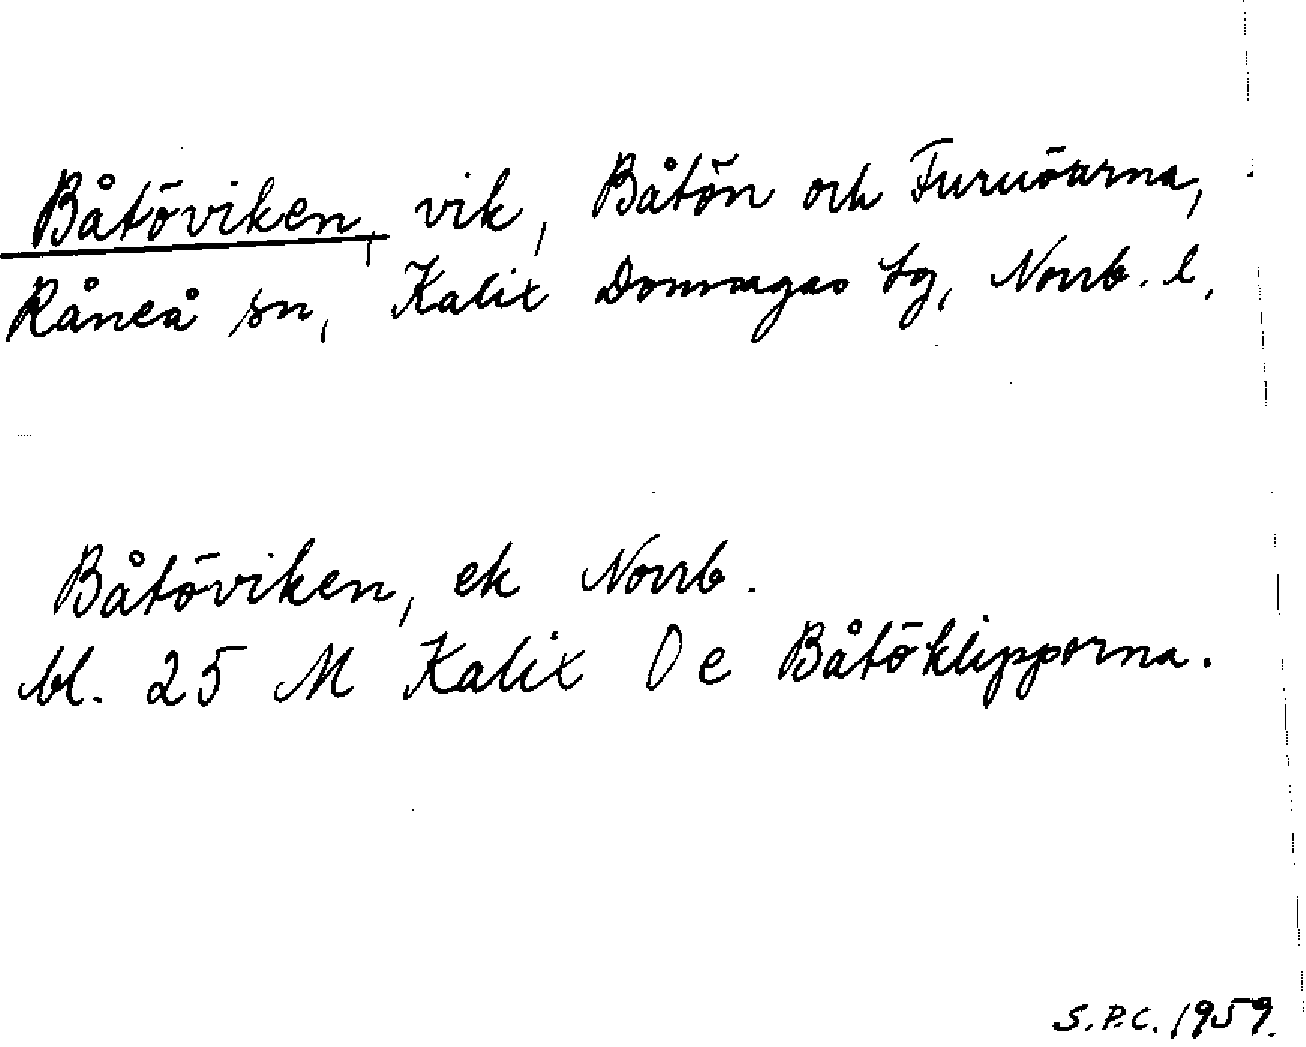 Båtöviken, vik, Båtön och Furuöarna,
Råneå sn, Kalix Domsagas tg, Norrb. l.
Båtöviken, ek Norrb.
bl. 25 M Kalix Oe Båtöklipporna.
S.P.C. 1959.